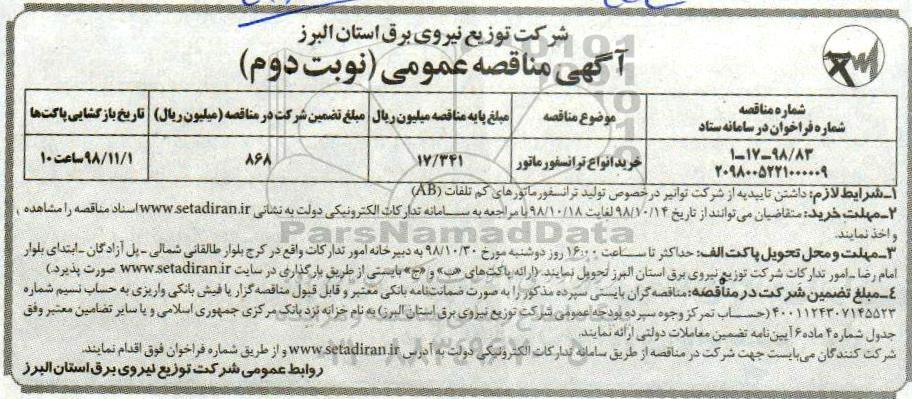 شرکت توزیع نیروی برق استان البرز
آگهی مناقصه عمومی (نوبت دوم)
شماره مناقصه
شماره فراخوان در سامانه ستاد
موضوع مناقصه
مبلغ پایه مناقصه میلیون ریال
مبلغ تضمین شرکت در مناقصه (میلیون ریال)
تاریخ بازگشایی پاکت‌ها
۱-۱۷-۹۸/۸۳
۲۰۹۸۰۰۵۲۲۱۰۰۰۰۰۹
خرید انواع ترانسفورماتور
۱۷/۳۴۱
۸۶۸
۹۸/۱۱/۱ ساعت ۱۰
۱-شرایط لازم: داشتن تاییدیه از شرکت توانیر در خصوص تولید ترانسفورماتورهای کم تلفات (AB)
۲-مهلت خرید: متقاضیان می‌توانند از تاریخ ۹۸/۱۰/۱۴ لغایت ۹۸/۱۰/۱۸ با مراجعه به سامانه تدارکات الکترونیکی دولت به نشانی www.setadiran.ir اسناد مناقصه را مشاهده
و اخذ نمایند.
۳-مهلت و محل تحویل پاکت الف: حداکثر تا ساعت ۱۶:۰۰ روز دوشنبه مورخ ۹۸/۱۰/۳۰ به دبیرخانه امور تدارکات واقع در کرج بلوار طالقانی شمالی - پل آزادگان - ابتدای بلوار
امام رضا - امور تدارکات شرکت توزیع نیروی برق استان البرز تحویل نمایند. (ارائه پاکت‌های «ب» و «ج» بایستی از طریق بارگذاری در سایت www.setadiran.ir صورت پذیرد.)
۴-مبلغ تضمین شرکت در مناقصه: مناقصه‌گران بایستی سپرده مذکور را به صورت ضمانت‌نامه بانکی معتبر و قابل قبول مناقصه‌گزار یا فیش بانکی واریزی به حساب نسیم شماره
۴۰۰۱۱۲۴۳۰۷۱۴۵۵۲۳ (حساب تمرکز وجوه سپرده بودجه عمومی شرکت توزیع نیروی برق استان البرز) به نام خزانه نزد بانک مرکزی جمهوری اسلامی و یا سایر تضامین معتبر وفق
جدول شماره ۴ ماده ۶ آیین‌نامه تضمین معاملات دولتی ارائه نمایند.
شرکت کنندگان می‌بایست جهت شرکت در مناقصه از طریق سامانه تدارکات الکترونیکی دولت به آدرس www.setadiran.ir و از طریق شماره فراخوان فوق اقدام نمایند.
روابط عمومی شرکت توزیع نیروی برق استان البرز
ParsNamadData